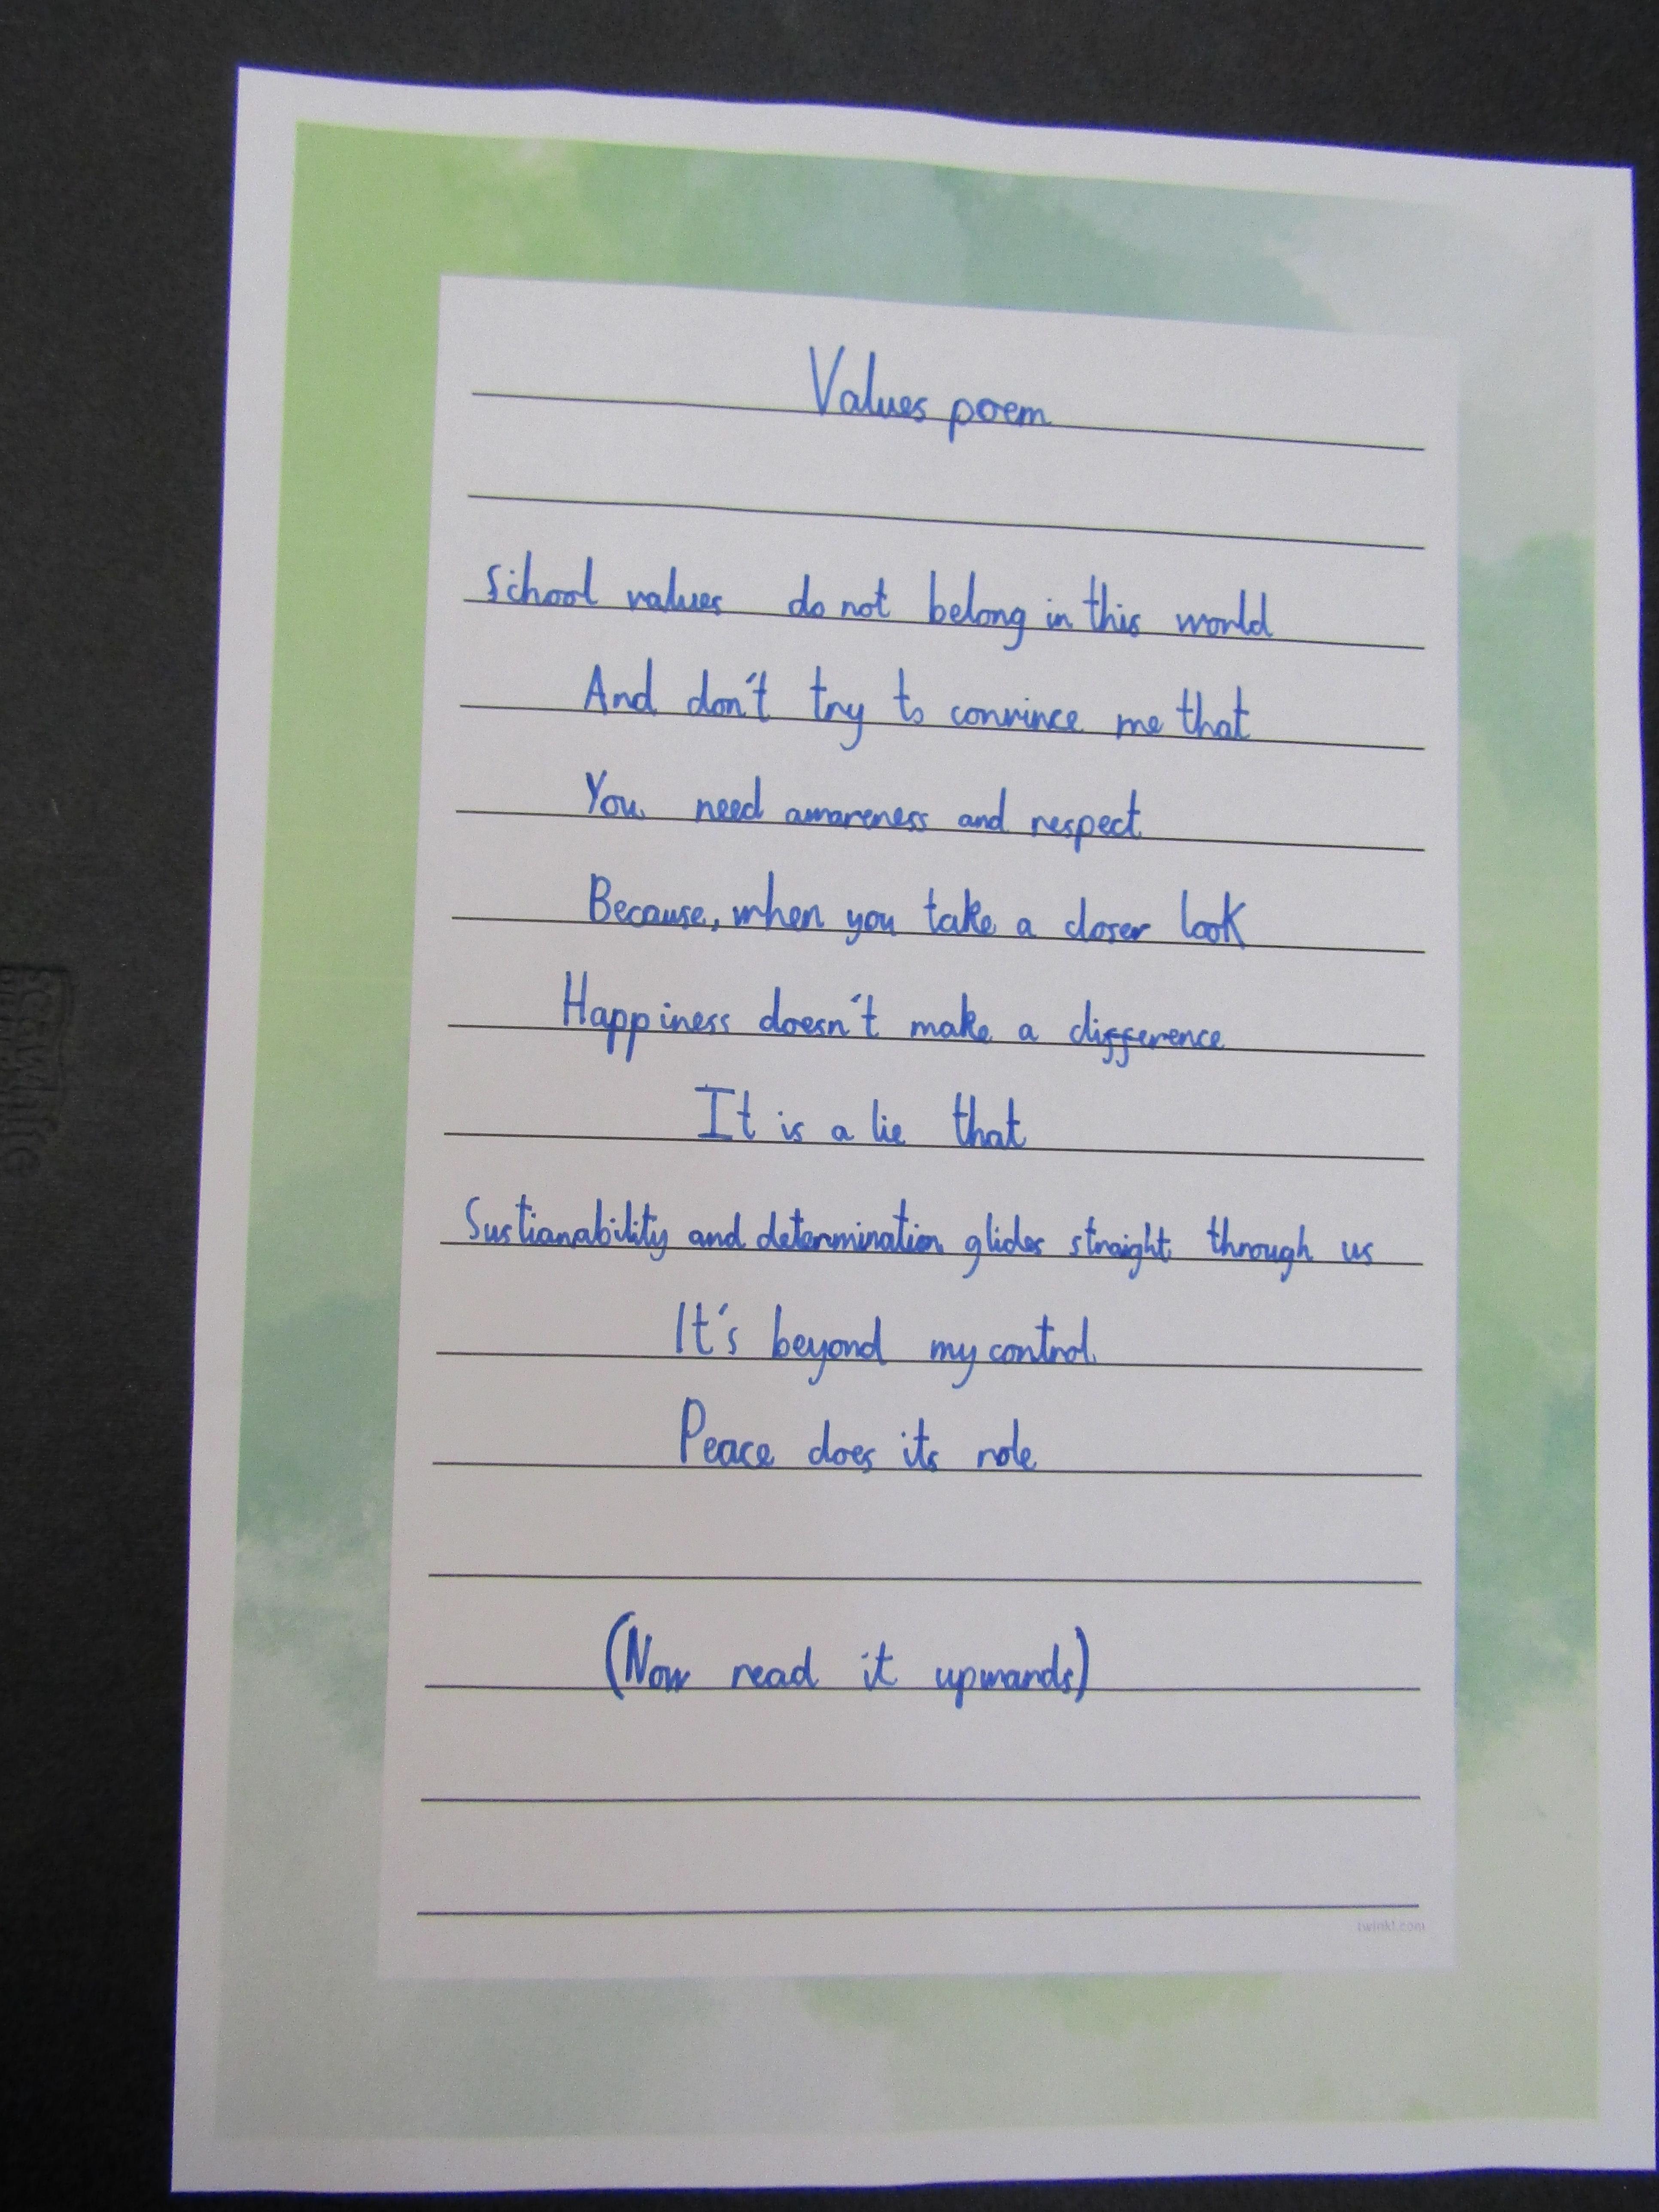 Values poem
School values do not belong in this world
And don't try to convince me that
You need awareness and respect
Because, when you take a closer look
Happiness doesn't make a difference
It is a lie that
Sustianability and determination glides straight through us
It's beyond my control
Peace does its role
(Now read it upwards)
twinkl.com